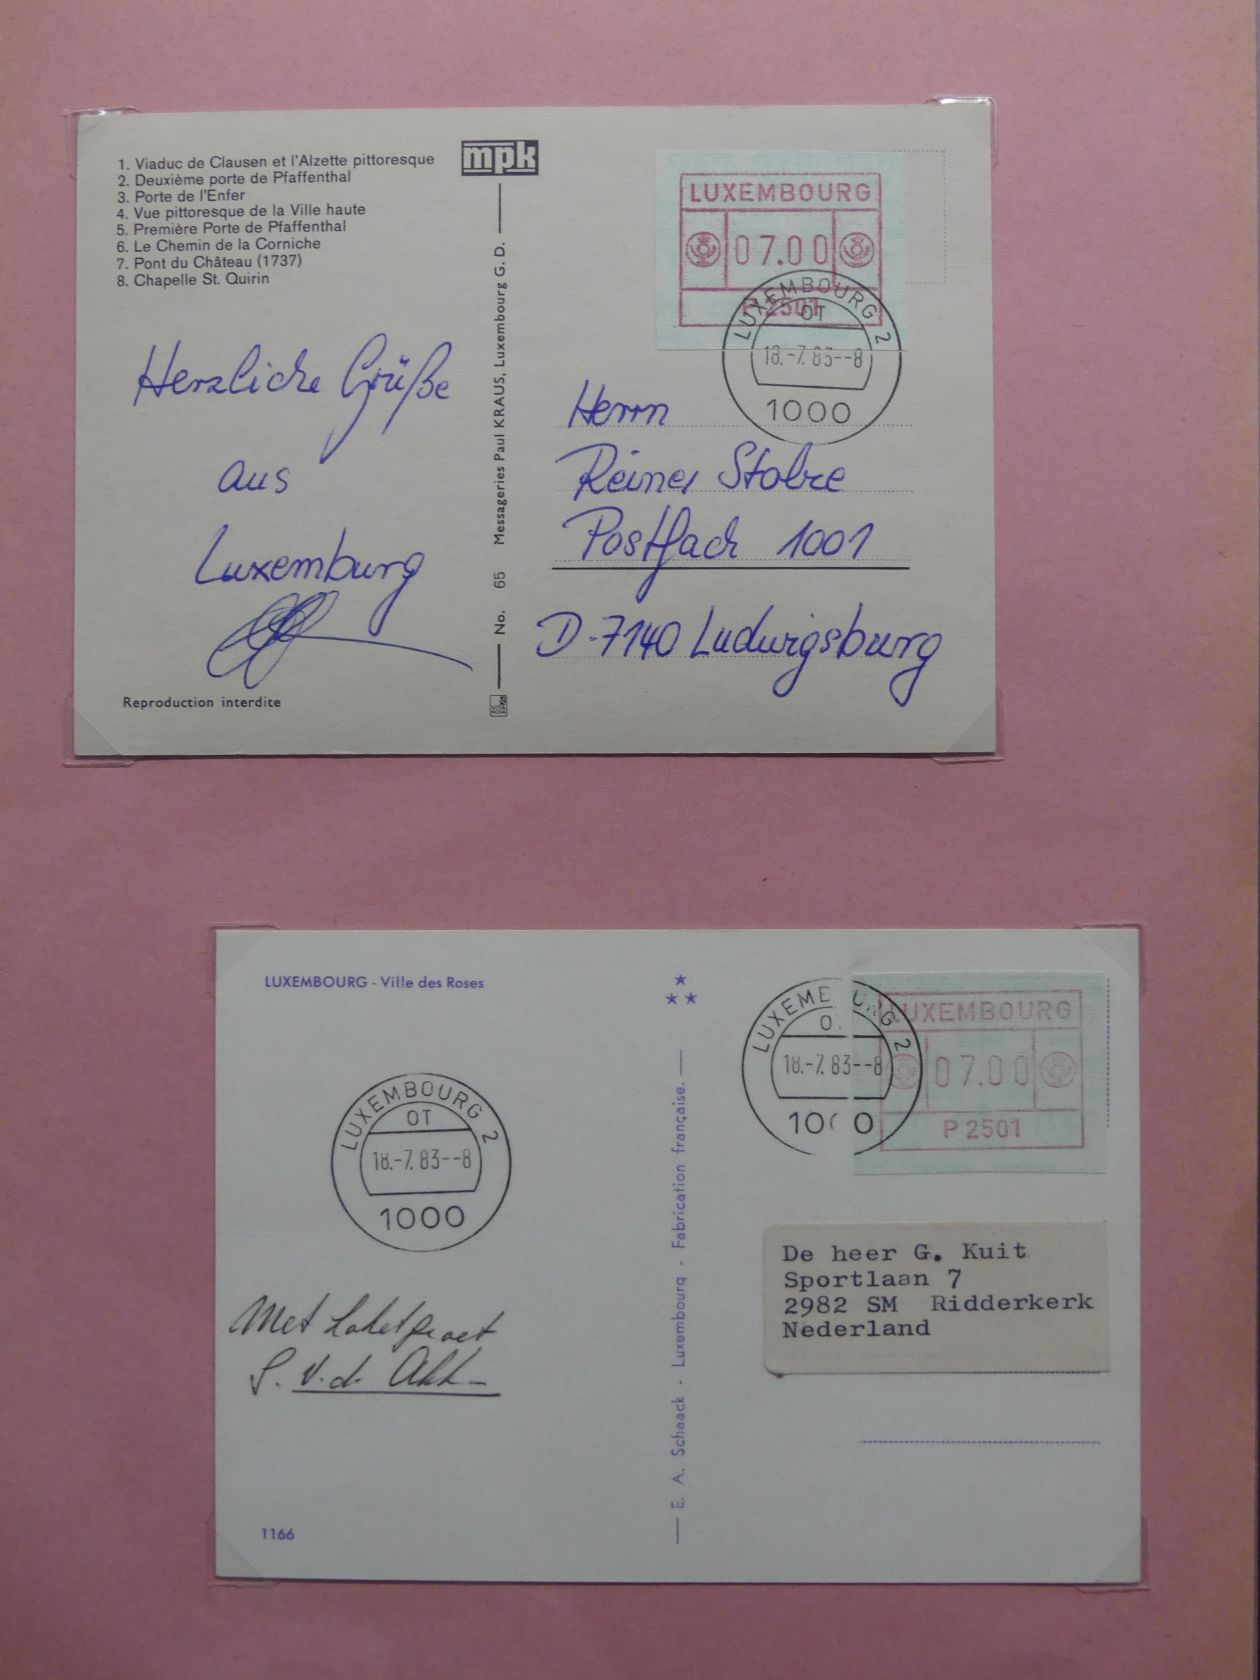 1. Viaduc de Clausen et l'Alzette pittoresque
2. Deuxième porte de Pfaffenthal
3. Porte de l'Enfer
4. Vue pittoresque de la Ville haute
5. Première Porte de Pfaffenthal
6. Le Chemin de la Corniche
7. Pont du Château (1737)
8. Chapelle St. Quirin
mpk
Herzliche Grüße
aus
Luxemburg
Reproduction interdite
No. 65 Messageries Paul KRAUS, Luxembourg G. D.
LUXEMBOURG
07.00
P 2501
LUXEMBOURG 2
OT
18.-7.83--8
1000
Herrn
Reiner Stolze
Postfach 1001
D-7140 Ludwigsburg
LUXEMBOURG - Ville des Roses
LUXEMBOURG 2
OT
18.-7.83--8
1000
Met
S. v.d.
1166
E. A. Schaack - Luxembourg - Fabrication française.
LUXEME UNG 2
O.
18.-7.83--8
1000
LUXEMBOURG
07.00
P 2501
De heer G. Kuit
Sportlaan 7
2982 SM Ridderkerk
Nederland